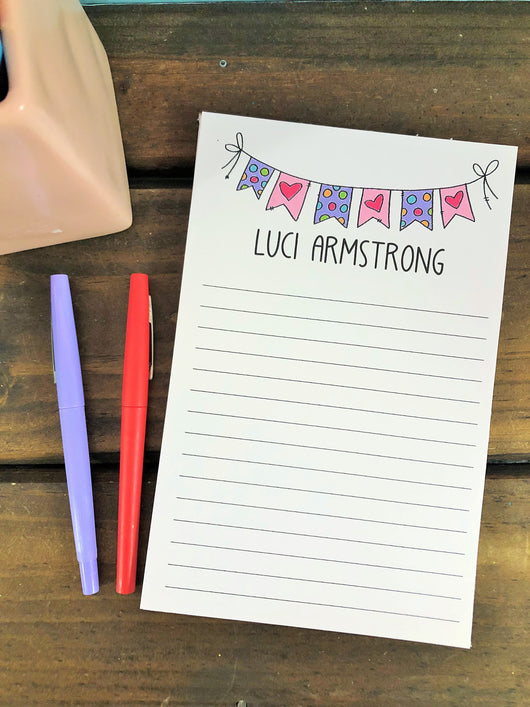 LUCI ARMSTRONG